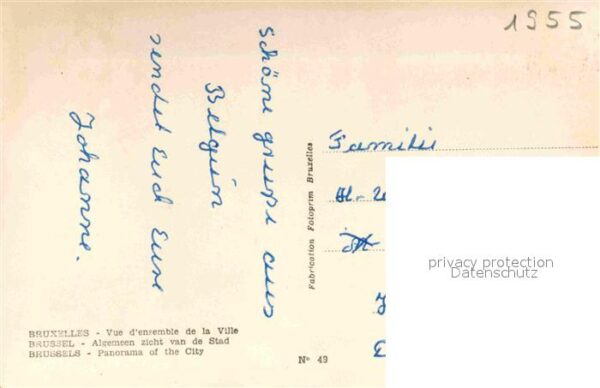 1955
Schöne grüße aus
Belgien
sendet Euch Eure
Johanne.
Fabrication Fotoprim Bruxelles
Familie
privacy protection
Datenschutz
BRUXELLES - Vue d'ensemble de la Ville
BRUSSEL - Algemeen zicht van de Stad
BRUSSELS - Panorama of the City
N° 49